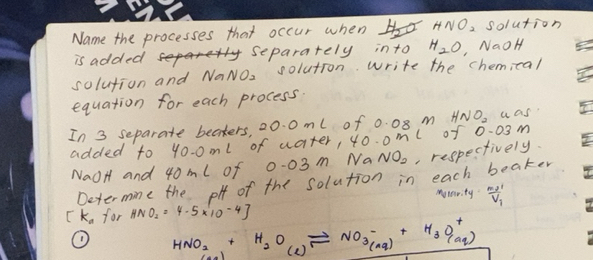 Name the processes that occur when H₂O HNO₂ solution
is added separetly separately into H₂O, NaOH
solution and NaNO₂ solution. Write the chemical
equation for each process.
In 3 separate beakers, 20.0 mL of 0.08 m HNO₂ was
added to 40.0 mL of water, 40.0 mL of 0.03 m
NaOH and 40 mL of 0.03 m NaNO₂, respectively.
Determine the pH of the solution in each beaker.
[Ka for HNO₂ = 4.5 x 10⁻⁴]
Molarity mol
① HNO₂ + H₂O (l) ⇌ NO₃⁻ (aq) + H₃O⁺ (aq)
(aq)